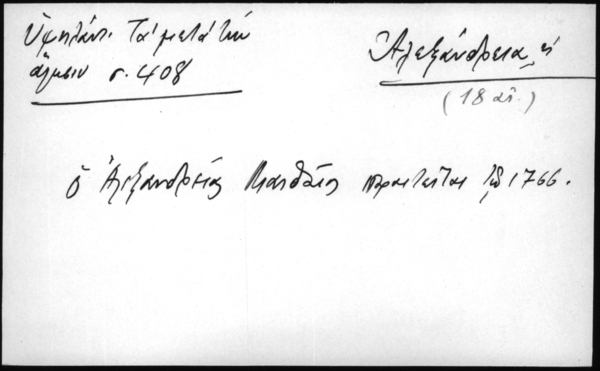 Ὑψηλάντ. Τὰ μετὰ τὴν
ἅλωσιν σ. 408
Ἀλεξάνδρεια, ἡ
(18 αἰ.)
ὁ Ἀλεξανδρείας Ματθαῖος παραιτεῖται τῷ 1766.